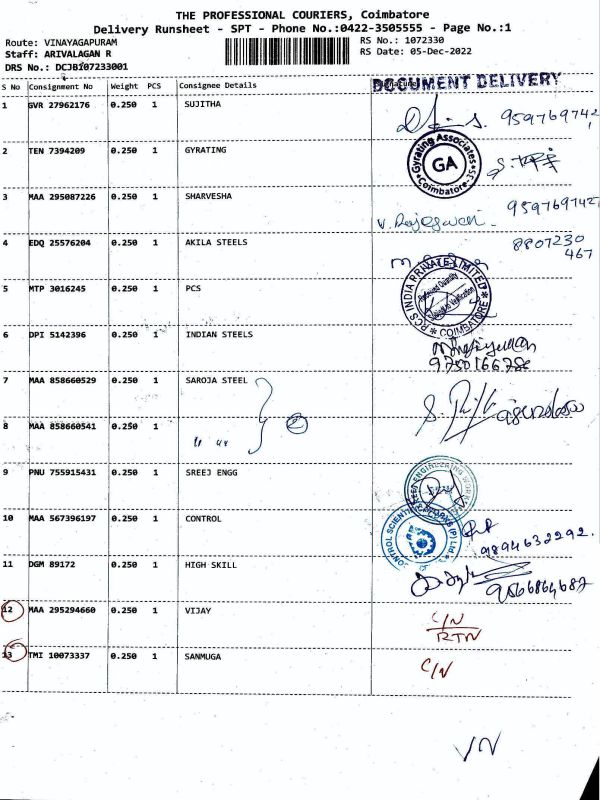 THE PROFESSIONAL COURIERS, Coimbatore
Delivery Runsheet - SPT - Phone No.:0422-3505555 - Page No.:1
Route: VINAYAGAPURAM
RS No.: 1072330
Staff: ARIVALAGAN R
RS Date: 05-Dec-2022
DRS No.: DCJB107233001
S No Consignment No Weight PCS Consignee Details
DOCUMENT DELIVERY
1 GVR 27962176 0.250 1 SUJITHA
959769742
2 TEN 7394209 0.250 1 GYRATING
Gyrating Associates
GA
Coimbatore-35
3 MAA 295087226 0.250 1 SHARVESHA
V. Rajeswari 9597697427
4 EDQ 25576204 0.250 1 AKILA STEELS
8807230
467
5 MTP 3016245 0.250 1 PCS
PCS INDIA PRIVATE LIMITED
COIMBATORE
6 DPI 5142396 0.250 1 INDIAN STEELS
9750166786
7 MAA 858660529 0.250 1 SAROJA STEEL
8 MAA 858660541 0.250 1
" "
2
9 PNU 755915431 0.250 1 SREEJ ENGG
10 MAA 567396197 0.250 1 CONTROL
9894632292.
11 DGM 89172 0.250 1 HIGH SKILL
9566864687
12 MAA 295294660 0.250 1 VIJAY
C/N
RTN
13 TMI 10073337 0.250 1 SANMUGA
C/N